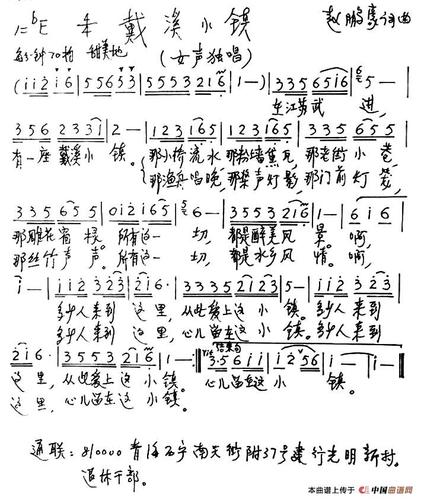 1=♭E 2/4 戴溪小镇 赵鹏骞词曲
每分钟70拍 甜美地 (女声独唱)
(1 1 2 1 6 | 5 5 6 5 3 | 5 5 5 3 2 1 6 | 1 —) | 3 3 5 6 5 1 6 | 5 — |
在江苏武 进,
3 5 6 2 3 3 1 | 2 — | 1 2 3 1 6 5 | 1 2 3 1 6 5 | 3 3 5 6 5 5 |
有一座 戴溪小 镇。 那小桥流水 那粉墙黛瓦, 那老街小巷,
那渔兵唱晚, 那桨声灯影, 那门前灯笼,
3 3 5 6 5 5 | 0 1 2 1 6 5 | 6 — | 5 5 5 3 2 1 6 | 1 — | 6 1 6 |
那雕花窗棂。 所有这一 切, 都是醉美风 景。 啊,
那丝竹声声。 所有这一 切, 都是水乡风 情。 啊,
1 — | 1 1 2 3 2 3 | 2 1 6 · | 3 3 3 5 2 1 2 3 | 5 — | 1 1 2 3 2 3 |
多少人来到 这里, 从此爱上这小 镇。 多少人来到
多少人来到 这里, 心儿留在这小 镇。 多少人来到
2 1 6 · | 3 5 5 3 2 1 6 | 1 — :‖ 结束句 3 · 5 6 1 1 | 1 2 5 6 | 1 — | 1 — ‖
这里, 从此爱上这小镇。 心儿留在这小 镇。
这里, 心儿留在这小镇。
通联: 810000 青海西宁南大街附37号建行光明新村。
退休干部。
本曲谱上传于 中国曲谱网